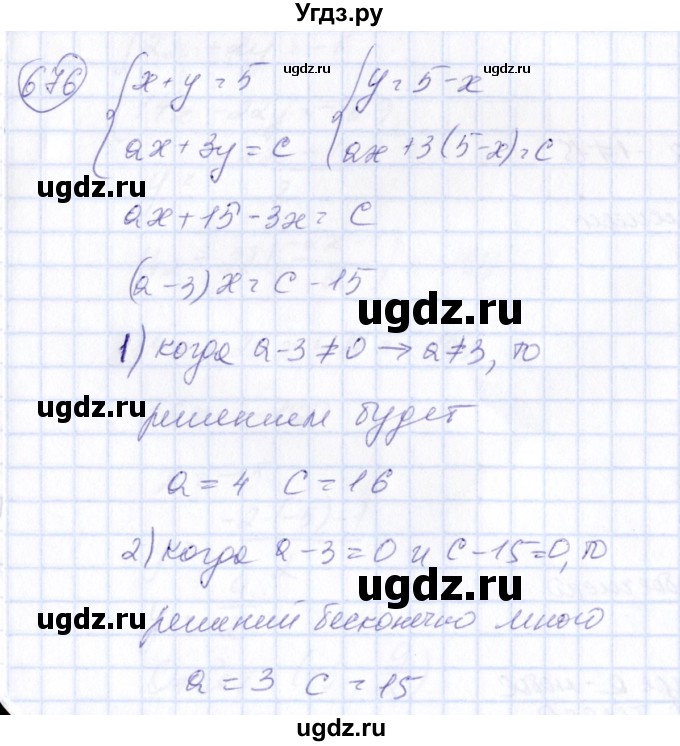 Угдз.ру
676 { x+y=5 { y=5-x
ugdz.ru ugdz.ru
ax+3y=c ax+3(5-x)=c
ugdz.ru
ax+15-3x=c
(a-3)x=c-15
ugdz.ru
1) когда a-3≠0→a≠3, то
ugdz.ru
решением будет
a=4 c=16
2) когда a-3=0 и c-15=0, то
ugdz.ru
ugdz.ru
решений бесконечно много
a=3 c=15
ugdz.ru
ugdz.ru